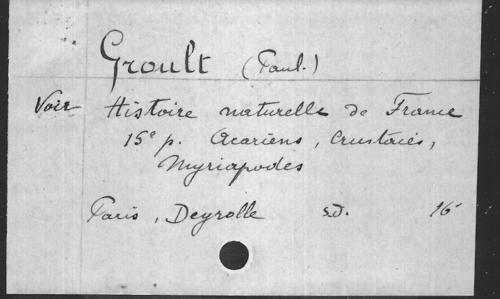 Groult (Paul.)
Voir Histoire naturelle de France
15e p. Acariens, Crustacés,
Myriapodes
Paris, Deyrolle s.d. 16